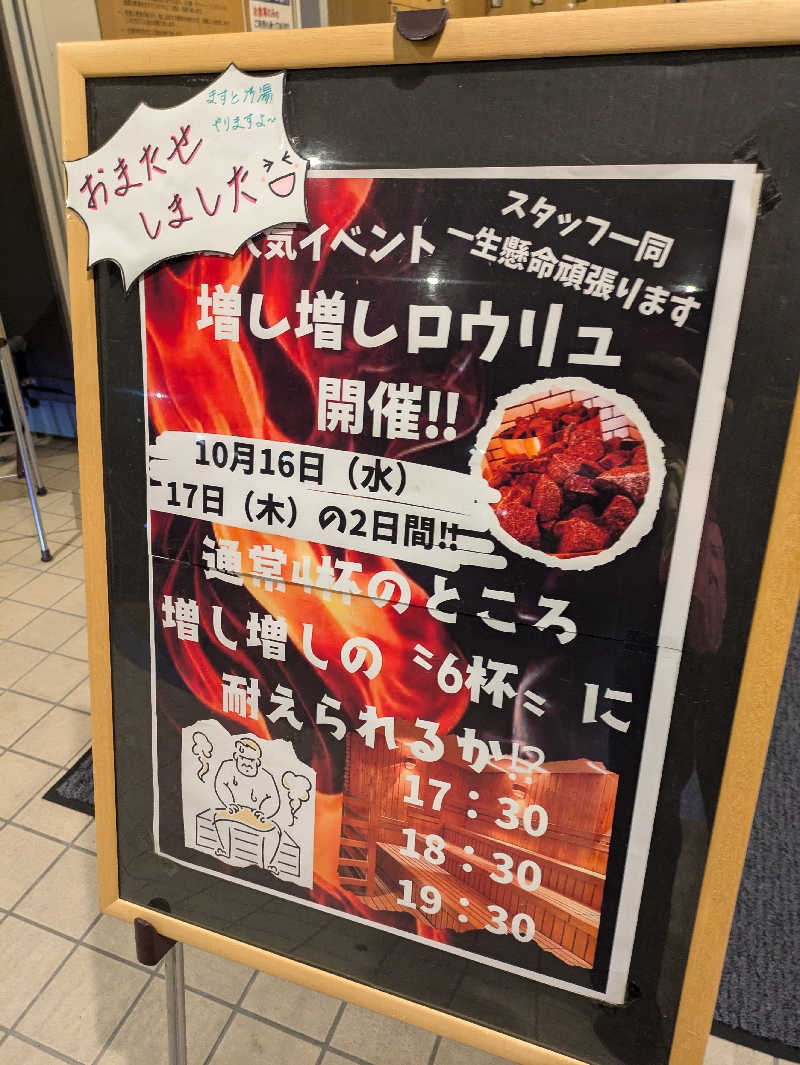 ますと乃湯
やりますよ~
おまたせ
しました
気イベント
スタッフ一同
一生懸命頑張ります
増し増しロウリュ
開催!!
10月16日（水）
17日（木）の2日間!!
通常4杯のところ
増し増しの〝6杯〟に
耐えられるか!?
17：30
18：30
19：30